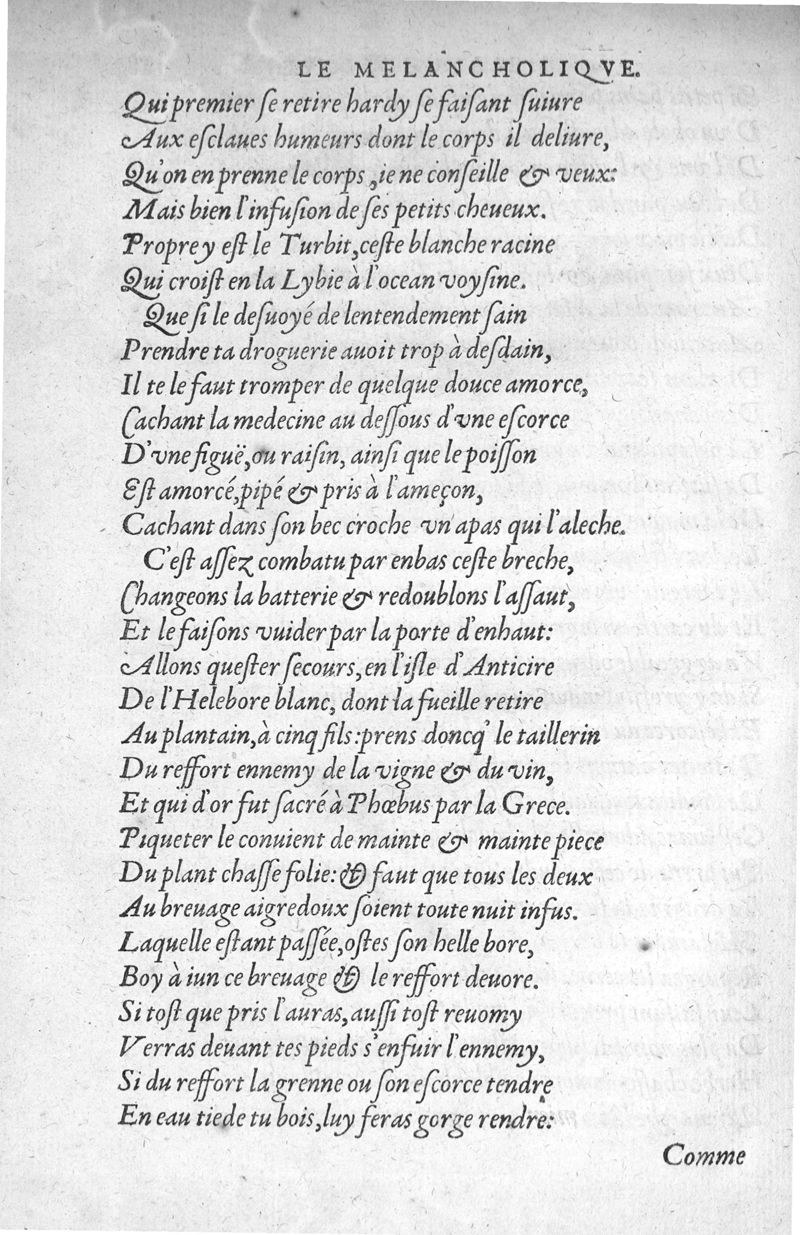 LE MELANCHOLIQVE.
Qui premier ſe retire hardy ſe faiſant ſuiure
Aux eſclaues humeurs dont le corps il deliure,
Qu'on en prenne le corps, ie ne conſeille & veux:
Mais bien l'infuſion de ſes petits cheueux.
Propre y eſt le Turbit, ceſte blanche racine
Qui croiſt en la Lybie à l'ocean voyſine.
Que ſi le deſuoyé de lentendement ſain
Prendre ta droguerie auoit trop à deſdain,
Il te le faut tromper de quelque douce amorce,
Cachant la medecine au deſſous d'vne eſcorce
D'vne figuë, ou raiſin, ainſi que le poiſſon
Eſt amorcé, pipé & pris à l'ameçon,
Cachant dans ſon bec croche vn apas qui l'aleche.
C'eſt aſſez combatu par enbas ceſte breche,
Changeons la batterie & redoublons l'aſſaut,
Et le faiſons vuider par la porte d'enhaut:
Allons queſter ſecours, en l'iſle d'Anticire
De l'Helebore blanc, dont la fueille retire
Au plantain, à cinq fils: prens doncq' le taillerin
Du reffort ennemy de la vigne & du vin,
Et qui d'or fut ſacré à Phœbus par la Grece.
Piqueter le conuient de mainte & mainte piece
Du plant chaſſe folie: & faut que tous les deux
Au breuage aigredoux ſoient toute nuit infus.
Laquelle eſtant paſſée, oſtes ſon helle bore,
Boy à iun ce breuage & le reffort deuore.
Si toſt que pris l'auras, auſſi toſt reuomy
Verras deuant tes pieds s'enfuir l'ennemy,
Si du reffort la grenne ou ſon eſcorce tendre
En eau tiede tu bois, luy feras gorge rendre:
Comme